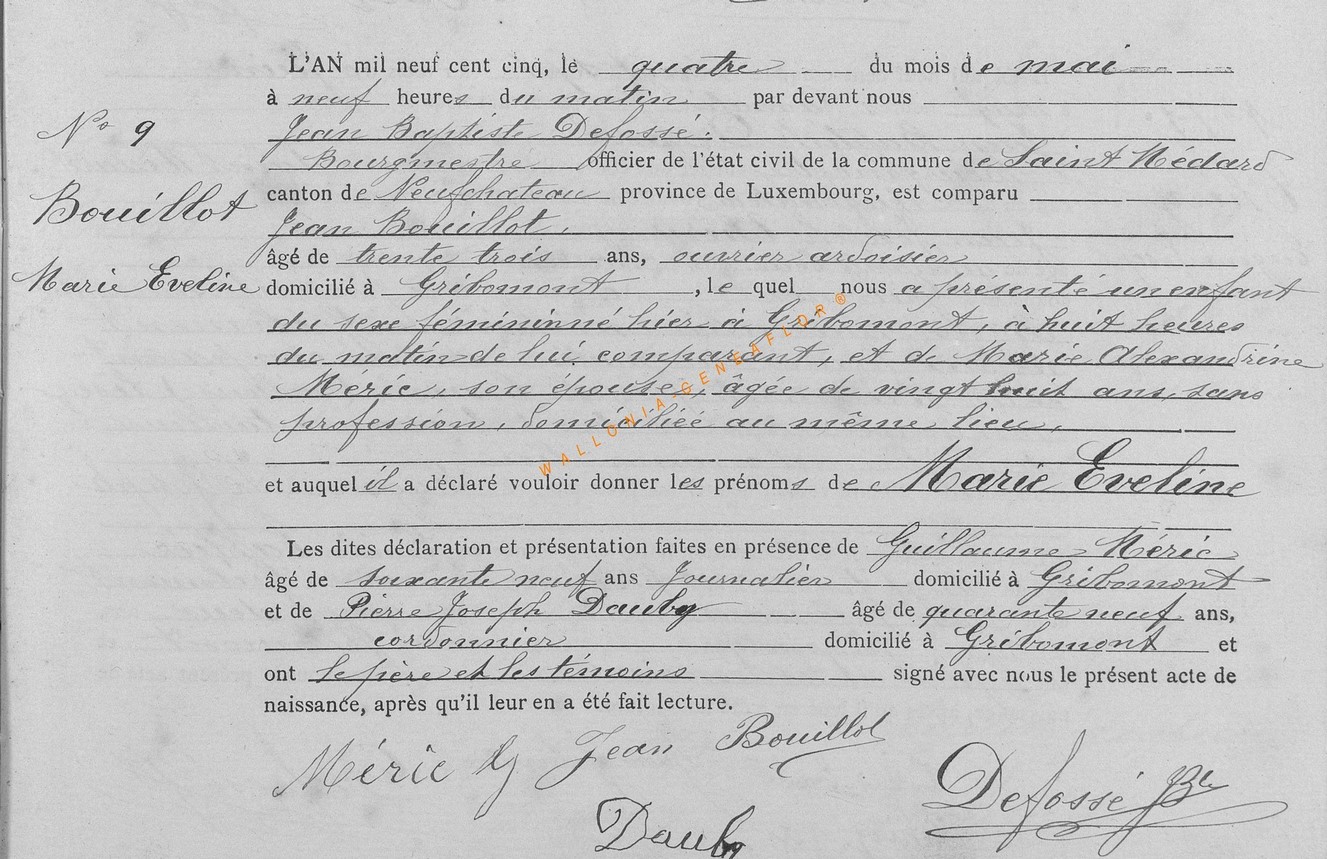 L'AN mil neuf cent cinq, le quatre du mois de mai
à neuf heures du matin par devant nous
N° 9
Jean Baptiste Defossé.
Bourgmestre officier de l'état civil de la commune de Saint Médard
Bouillot
canton de Neufchateau province de Luxembourg, est comparu
Jean Bouillot,
âgé de trente trois ans, ouvrier ardoisier
Marie Eveline
domicilié à Gribomont, le quel nous a présenté un enfant
du sexe féminin né hier à Gribomont, à huit heures
du matin de lui comparant, et de Marie Alexandrine
Méric, son épouse, âgée de vingt huit ans, sans
profession, domiciliée au même lieu,
WALLONIA-GENEAFLOR®
et auquel il a déclaré vouloir donner les prénoms de Marie Eveline
Les dites déclaration et présentation faites en présence de Guillaume Méric
âgé de soixante neuf ans Journalier domicilié à Gribomont
et de Pierre Joseph Dauby âgé de quarante neuf ans,
cordonnier domicilié à Gribomont et
ont le père et les témoins signé avec nous le présent acte de
naissance, après qu'il leur en a été fait lecture.
Méric G Jean Bouillot
Defossé JB
Dauby